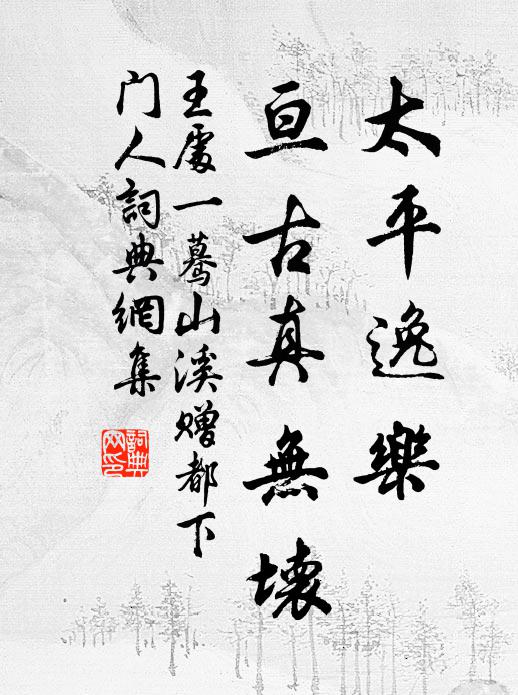 太平逸樂
亘古真無壞
王處一驀山溪贈都下
门人詞典網集
詞典
网印